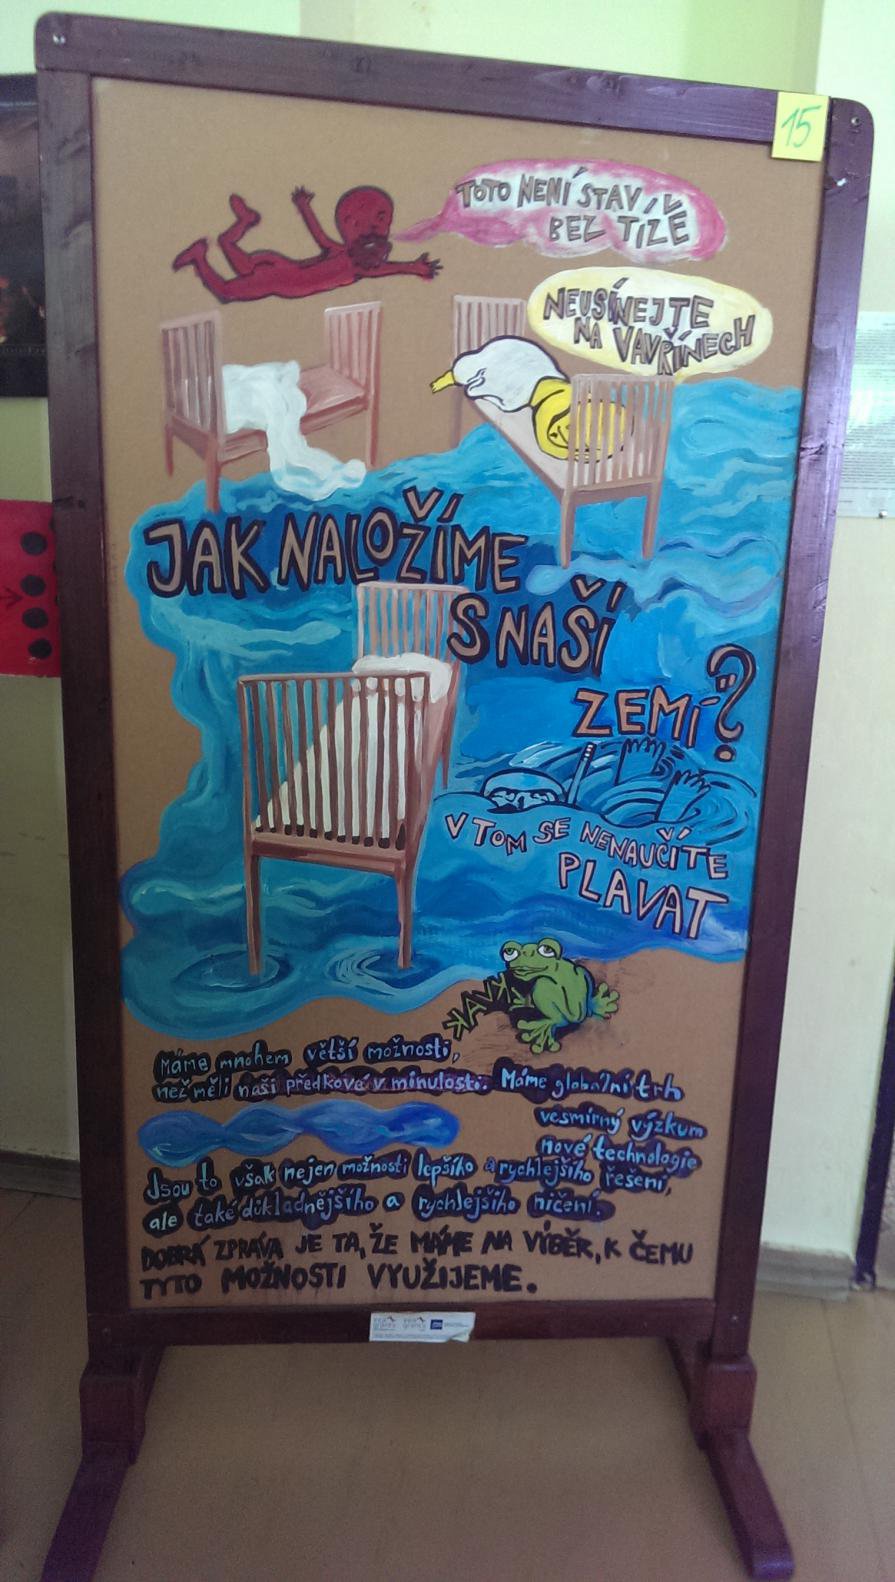 15
TOTO NENÍ STAV
BEZ TÍŽE
NEUSÍNEJTE
NA VAVŘÍNECH
JAK NALOŽÍME
S NAŠÍ
ZEMÍ?
V TOM SE NENAUČÍTE
PLAVAT
KVAK
Máme mnohem větší možnosti,
než měli naši předkové v minulosti. Máme globální trh
vesmírný výzkum
nové technologie
Jsou to však nejen možnosti lepšího a rychlejšího řešení,
ale také důkladnějšího a rychlejšího ničení.
DOBRÁ ZPRÁVA JE TA, ŽE MÁME NA VÝBĚR, K ČEMU
TYTO MOŽNOSTI VYUŽIJEME.